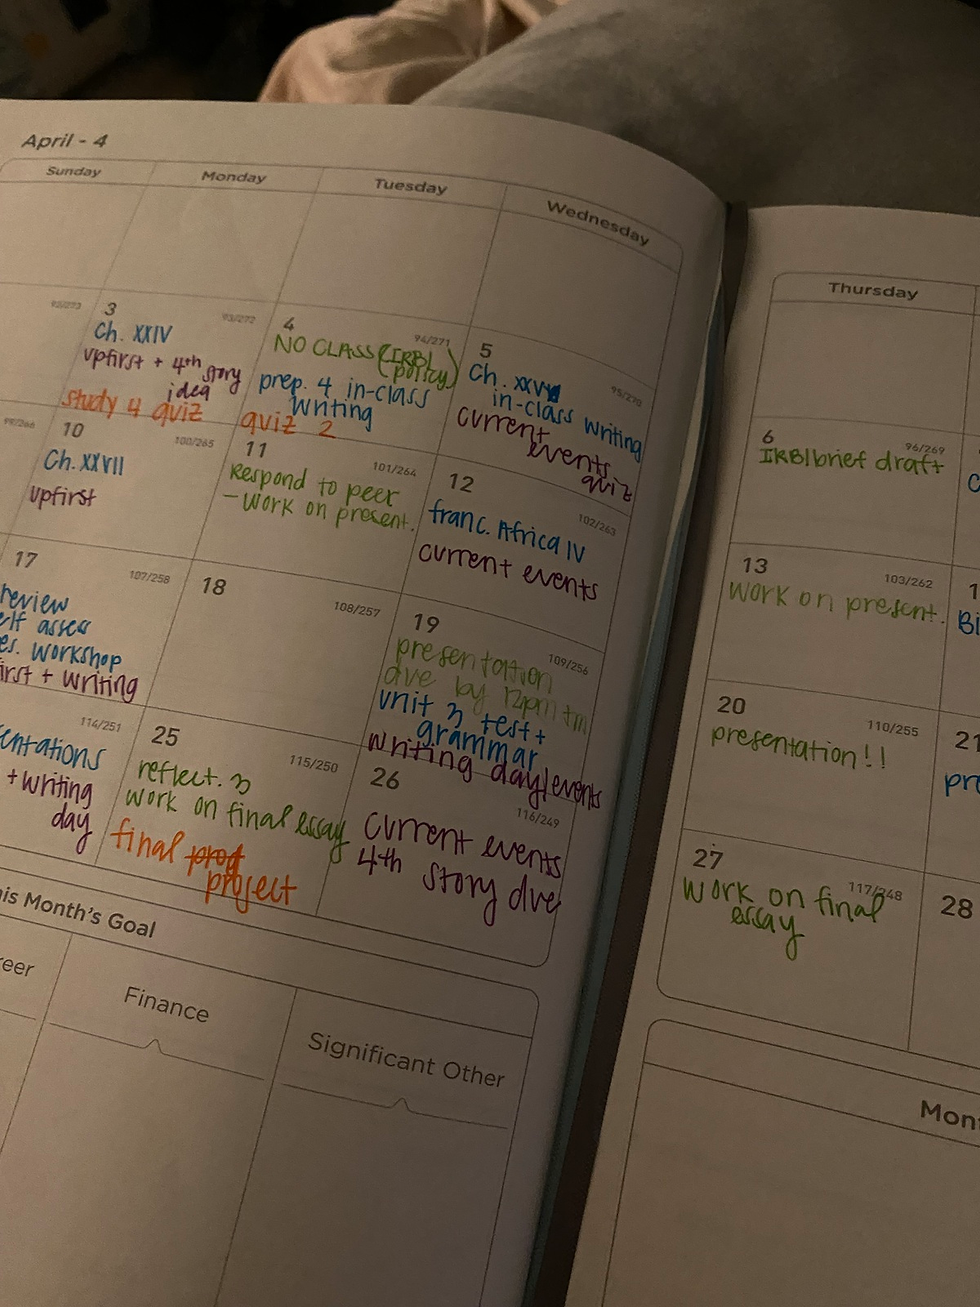 April - 4
Sunday
Monday
Tuesday
Wednesday
3
93/272
Ch. XXIV
upfirst + 4th story
idea
study 4 quiz
4
94/271
NO CLASS (IRB/
policy)
prep. 4 in-class
writing
quiz 2
5
95/270
Ch. XXV
in-class writing
current
events
quiz
10
100/265
Ch. XXVII
upfirst
11
101/264
Respond to peer
- work on present.
12
102/263
franc. Africa IV
current events
17
107/258
review
elf asses
es. workshop
irst + writing
18
108/257
19
109/256
presentation
due by 12pm tm
unit 3 test +
grammar
writing day/events
114/251
entations
+ writing
day
25
115/250
reflect. 3
work on final essay
final
project
26
116/249
current events
4th story due
his Month's Goal
reer
Finance
Significant Other
Thursday
6
96/269
IRB/brief draft
13
103/262
work on present.
Bi
20
110/255
presentation!!
21
pr
27
117/248
work on final
essay
28
Mon